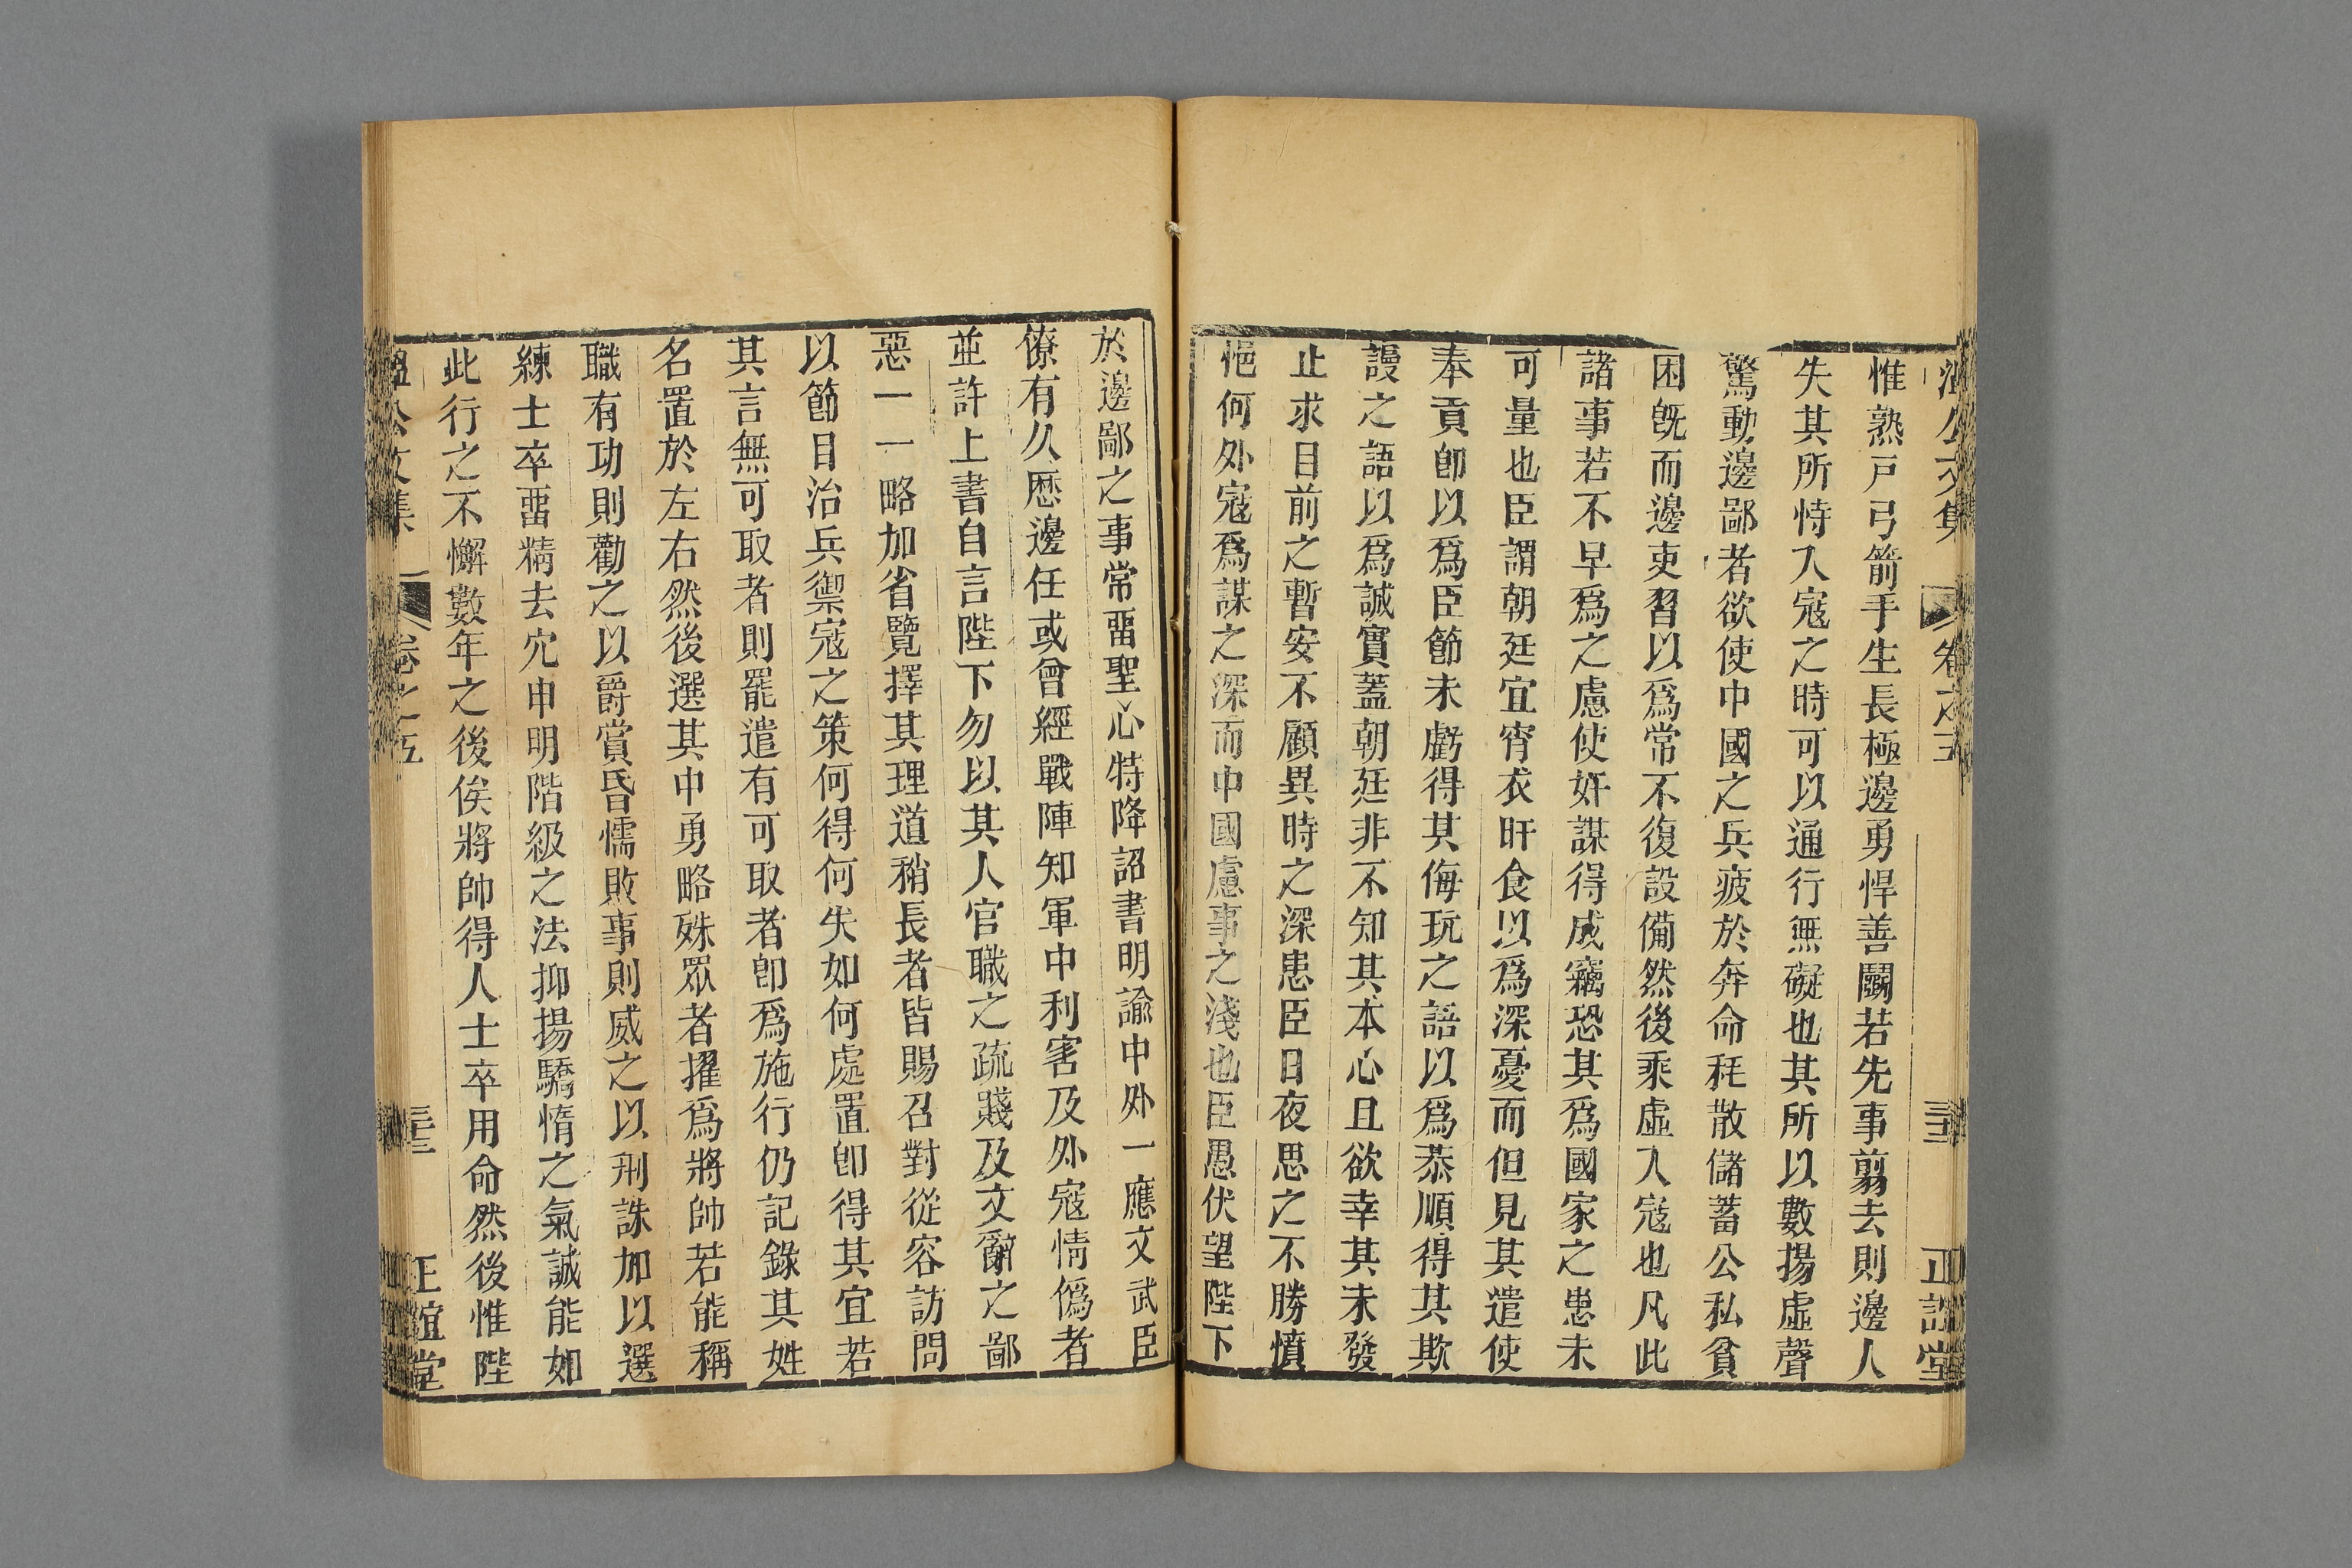 溫公文集 卷之五 三十二 正誼堂
惟熟戸弓箭手生長極邊勇悍善鬭若先事翦去則邊人
失其所恃入寇之時可以通行無礙也其所以數揚虛聲
驚動邊鄙者欲使中國之兵疲於奔命耗散儲蓄公私貧
困旣而邊吏習以爲常不復設備然後乘虛入寇也凡此
諸事若不早爲之慮使奸謀得成竊恐其爲國家之患未
可量也臣謂朝廷宜宵衣旰食以爲深憂而但見其遣使
奉貢卽以爲臣節未虧得其侮玩之語以爲恭順得其欺
謾之語以爲誠實蓋朝廷非不知其本心且欲幸其未發
止求目前之暫安不顧異時之深患臣日夜思之不勝憤
悒何外寇爲謀之深而中國慮事之淺也臣愚伏望陛下
於邊鄙之事常畱聖心特降詔書明諭中外一應文武臣
僚有久歷邊任或曾經戰陣知軍中利害及外寇情僞者
並許上書自言陛下勿以其人官職之疏賤及文辭之鄙
惡一一略加省覽擇其理道稍長者皆賜召對從容訪問
以節目治兵禦寇之策何得何失如何處置卽得其宜若
其言無可取者則罷遣有可取者卽爲施行仍記錄其姓
名置於左右然後選其中勇略殊眾者擢爲將帥若能稱
職有功則勸之以爵賞昏懦敗事則威之以刑誅加以選
練士卒畱精去宂申明階級之法抑揚驕惰之氣誠能如
此行之不懈數年之後俟將帥得人士卒用命然後惟陛
溫公文集 卷之五 三十三 正誼堂